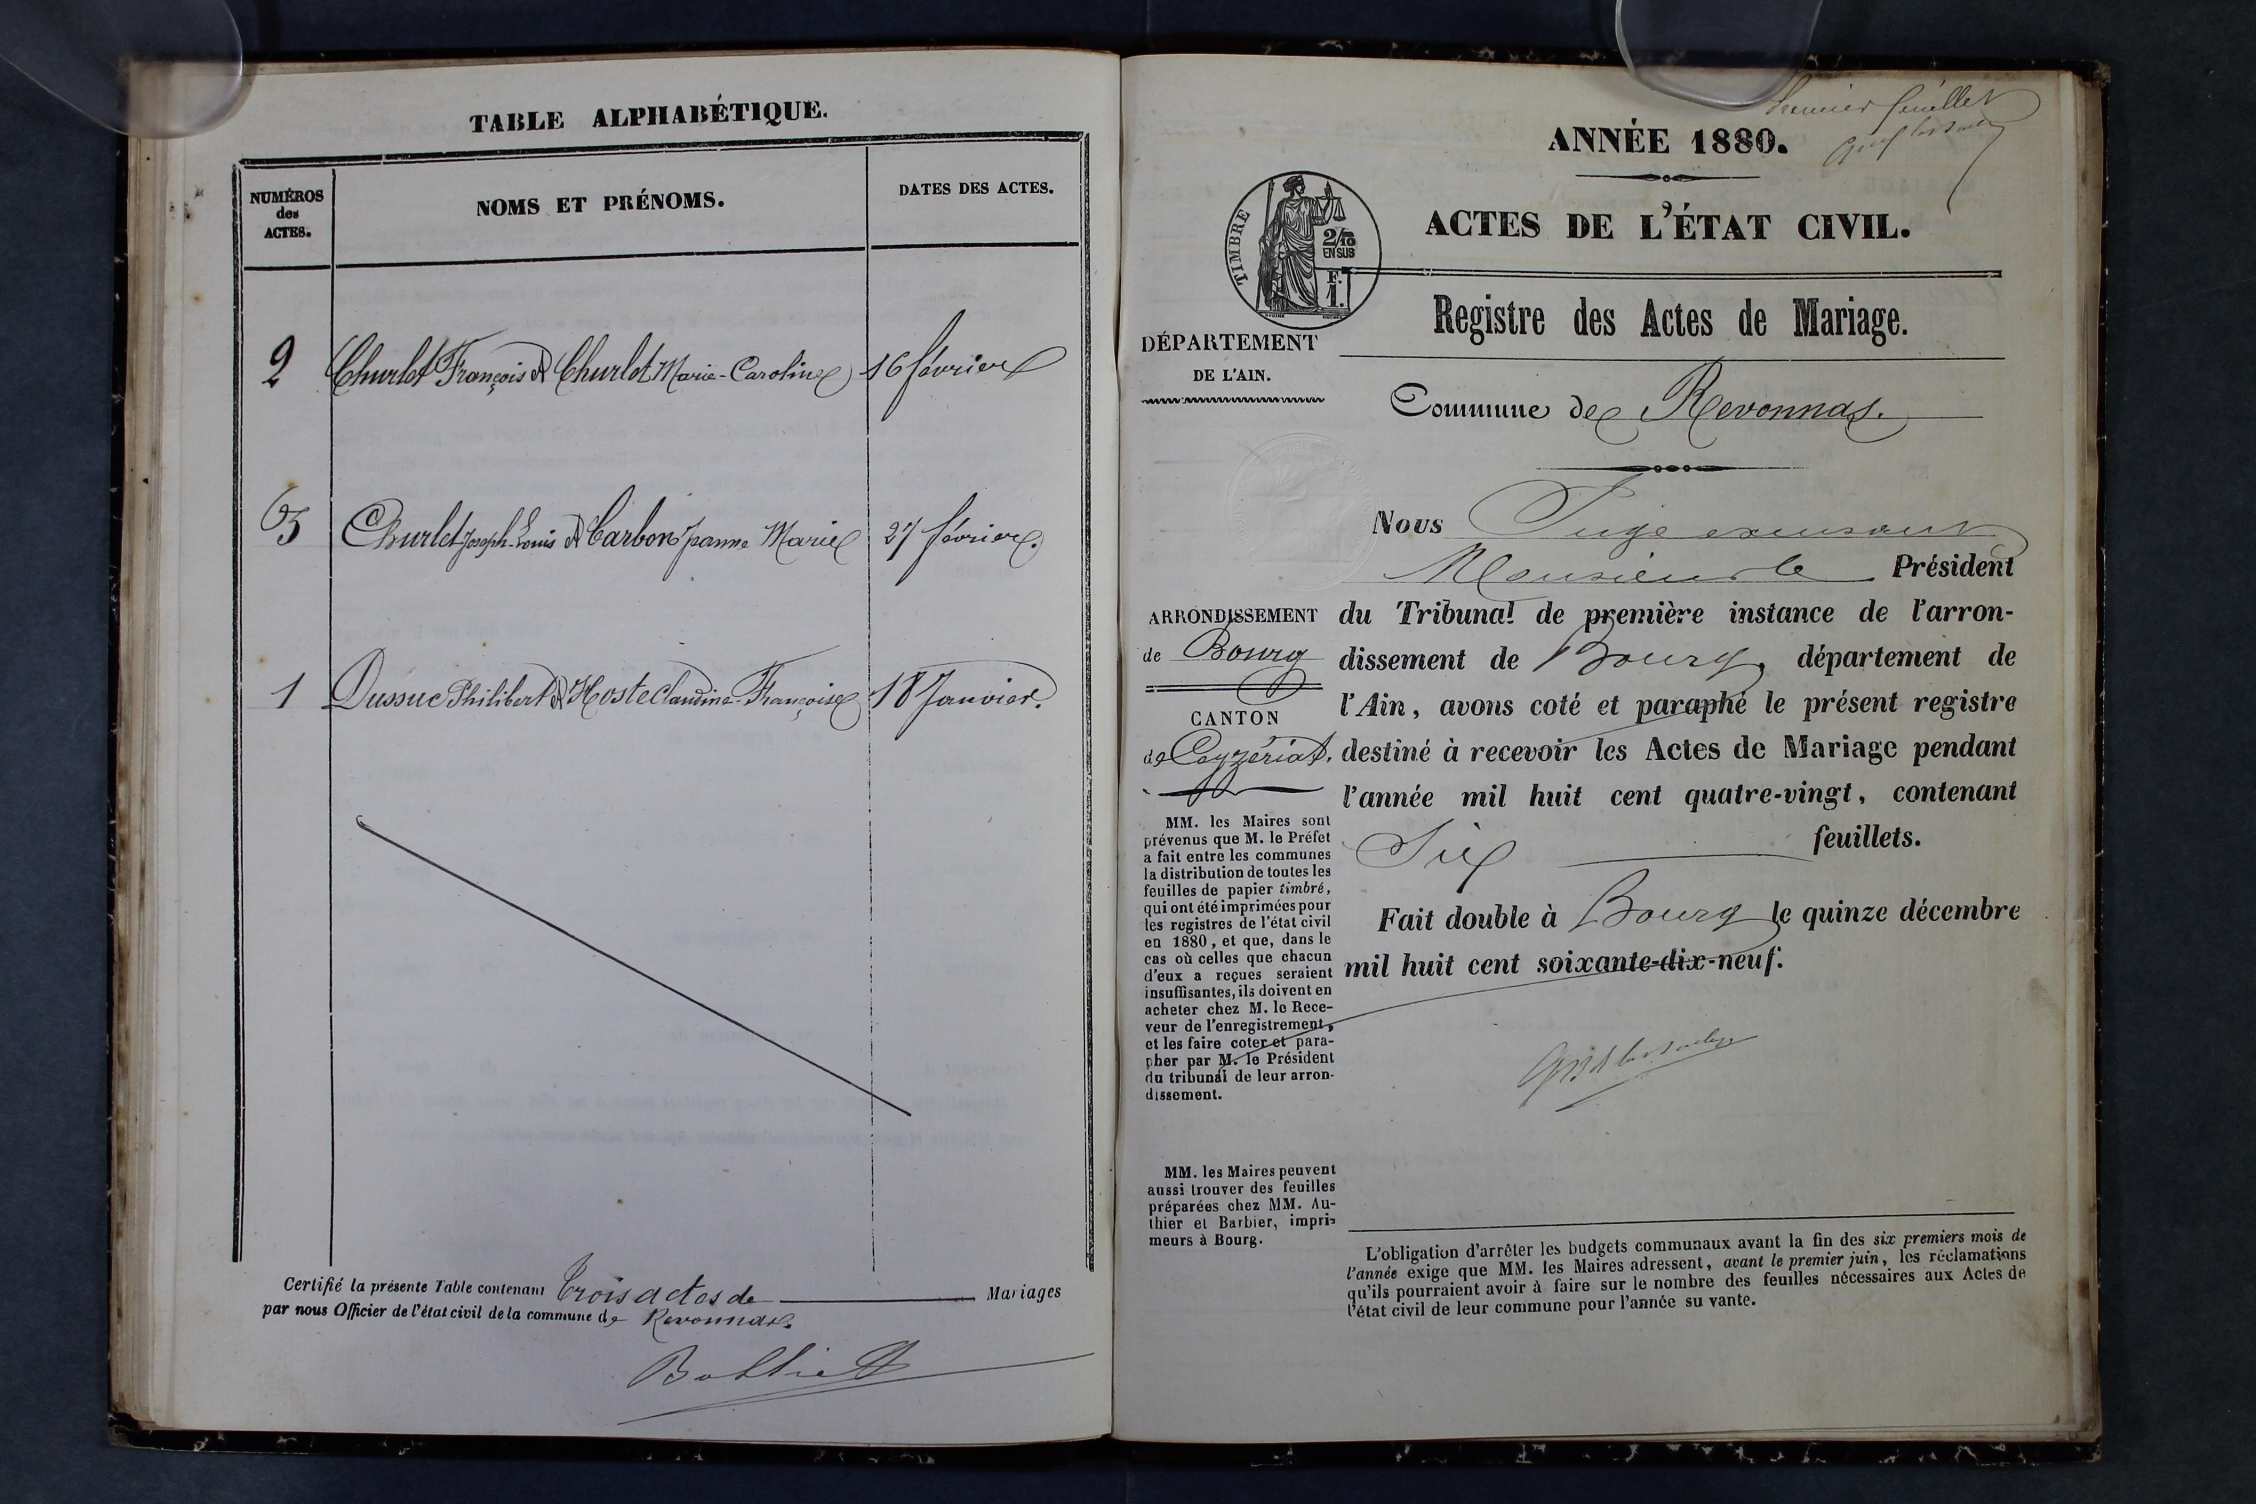 TABLE ALPHABÉTIQUE.
NUMÉROS
des
ACTES.
NOMS ET PRÉNOMS.
DATES DES ACTES.
2 Churlet François & Churlet Marie-Caroline 16 février
3 Churlet Joseph-Louis & Carbon Jeanne Marie 27 février.
1 Dussuc Philibert & Hoste Claudine-Françoise 18 Janvier.
Certifié la présente Table contenant Trois actes de Mariages
par nous Officier de l'état civil de la commune de Revonnas.
premier feuillet
ANNÉE 1880.
ACTES DE L'ÉTAT CIVIL.
TIMBRE
2/10
EN SUS
F.
1.
Registre des Actes de Mariage.
DÉPARTEMENT
DE L'AIN.
Commune de Revonnas.
Nous Juge
Monsieur le Président
du Tribunal de première instance de l'arron-
dissement de Bourg, département de
l'Ain, avons coté et paraphé le présent registre
destiné à recevoir les Actes de Mariage pendant
l'année mil huit cent quatre-vingt, contenant
Six feuillets.
Fait double à Bourg le quinze décembre
mil huit cent soixante-dix-neuf.
ARRONDISSEMENT
de Bourg
CANTON
de Ceyzériat.
MM. les Maires sont
prévenus que M. le Préfet
a fait entre les communes
la distribution de toutes les
feuilles de papier timbré,
qui ont été imprimées pour
les registres de l'état civil
en 1880, et que, dans le
cas où celles que chacun
d'eux a reçues seraient
insuffisantes, ils doivent en
acheter chez M. le Rece-
veur de l'enregistrement,
et les faire coter et para-
pher par M. le Président
du tribunal de leur arron-
dissement.
MM. les Maires peuvent
aussi trouver des feuilles
préparées chez MM. Au-
thier et Barbier, impri-
meurs à Bourg.
L'obligation d'arrêter les budgets communaux avant la fin des six premiers mois de
l'année exige que MM. les Maires adressent, avant le premier juin, les réclamations
qu'ils pourraient avoir à faire sur le nombre des feuilles nécessaires aux Actes de
l'état civil de leur commune pour l'année su vante.